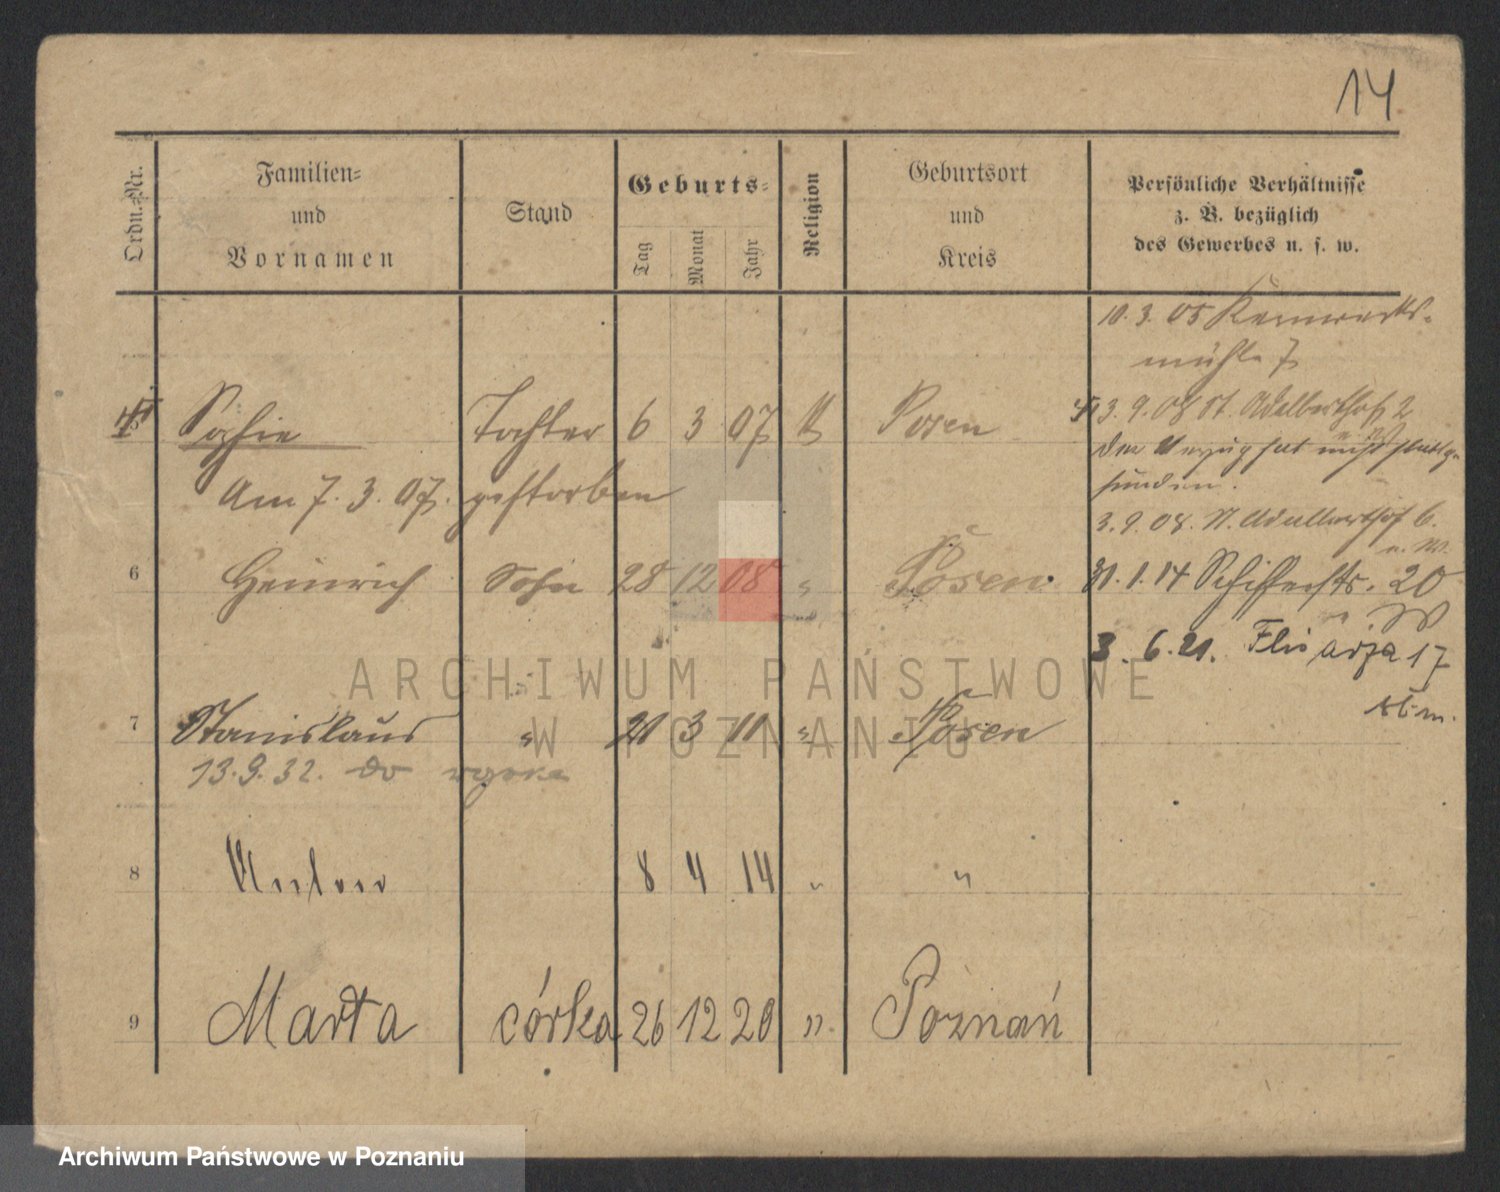 14
Ordn.-Nr.
Familien-
und
Vornamen
Stand
Geburts-
Tag
Monat
Jahr
Religion
Geburtsort
und
Kreis
Persönliche Verhältnisse
z. B. bezüglich
des Gewerbes u. s. w.
10. 3. 05
mühle 7
Sofie Tochter 6 3 07 Posen
3. 9. 08 St. Adalberthof 2
Der Umzug hat nicht stattge-
funden.
Am 7. 3. 07. gestorben
3. 9. 08. St. Adalberthof 6.
6 Heinrich Sohn 28 12 08 " Posen
31. 1. 14 20
3. 6. 21. Flisarja 17
7 Stanislaus " 21 3 11 " Posen
13. 9. 32. do
8 Anton 8 4 14 " "
9 Marta córka 26 12 20 " Poznań
ARCHIWUM PAŃSTWOWE
W POZNANIU
Archiwum Państwowe w Poznaniu